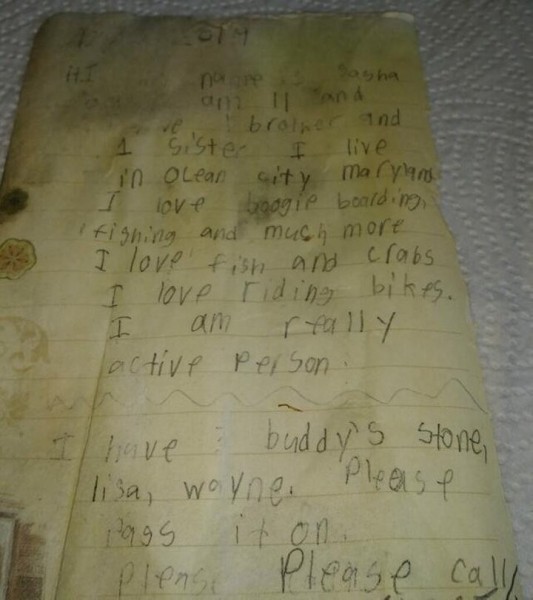 2014
HI name is Sasha
am 11 and
brother and
1 sister I live
in Ocean city maryland
I love boogie boarding,
fishing and much more
I love fish and crabs
I love riding bikes.
I am really
active person.
I have buddy's stone,
lisa, wayne. Please
pass it on.
Please call